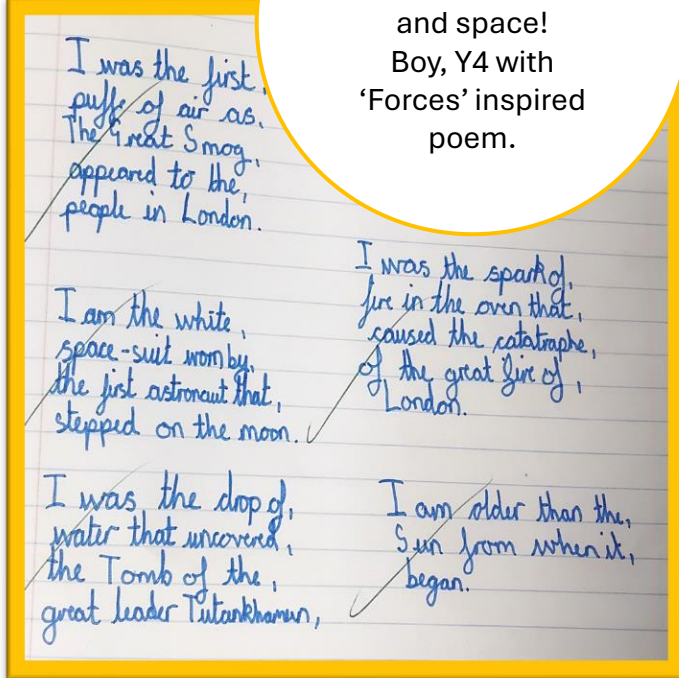 and space!
Boy, Y4 with
‘Forces’ inspired
poem.
I was the first,
puffs of air as,
The Great Smog,
appeared to the,
people in London.
I am the white,
space-suit worn by,
the first astronaut that,
stepped on the moon.
I was the drop of,
water that uncovered,
the Tomb of the,
great leader Tutankhamun,
I was the spark of,
fire in the oven that,
caused the catatraphe,
of the great fire of,
London.
I am older than the,
Sun from when it,
began.